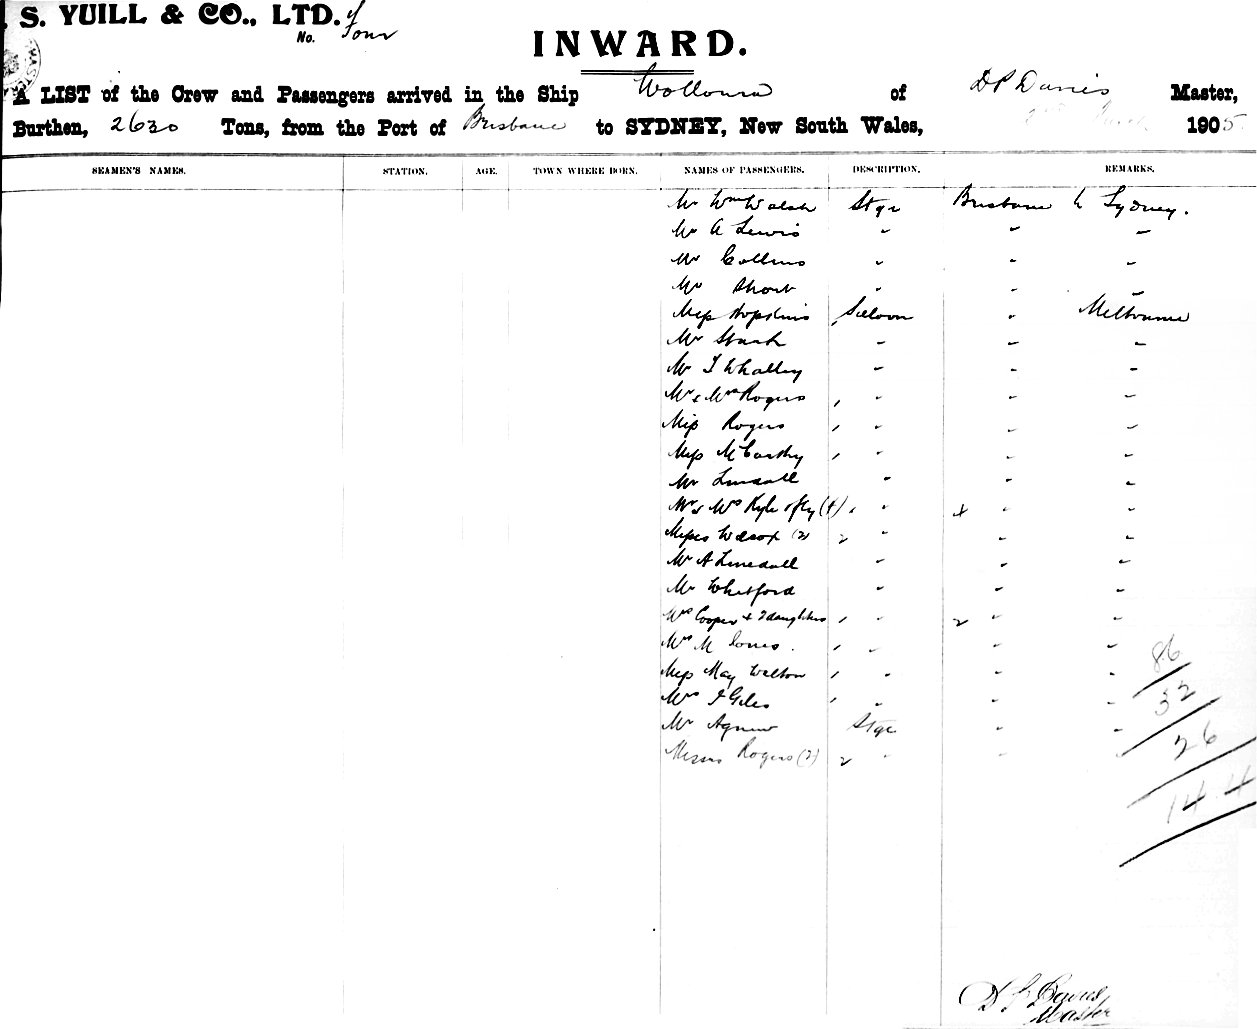 S. YUILL & CO., LTD.
No. Four
INWARD.
A LIST of the Crew and Passengers arrived in the Ship Wollowra of D P Davies Master,
Burthen, 2630 Tons, from the Port of Brisbane to SYDNEY, New South Wales, 1905
SEAMEN'S NAMES. STATION. AGE. TOWN WHERE BORN. NAMES OF PASSENGERS. DESCRIPTION. REMARKS.
Mr Wm Walsh Stge Brisbane to Sydney.
Mr A Lewis " " "
Mr Collins " " "
Mr Short " " "
Miss Hopkins Saloon " Melbourne
Mr Stark " " "
Mr T Whalley " " "
Mr & Mrs Rogers " " "
Miss Rogers " " "
Miss McCarthy " " "
Mr " " "
Mr & Mrs Kyle & fly (4) " " "
Misses Wilcox (2) 2 " " "
Mr A " " "
Mr Whitford " " "
Mrs Cooper & 2 daughters " 2 " "
Mrs M Jones. " " "
Miss May Welton " " "
Mrs J Giles " " "
Mr Agnew Stge " "
Messrs Rogers (2) 2 " " "
86
32
26
144
D P Davies
Master